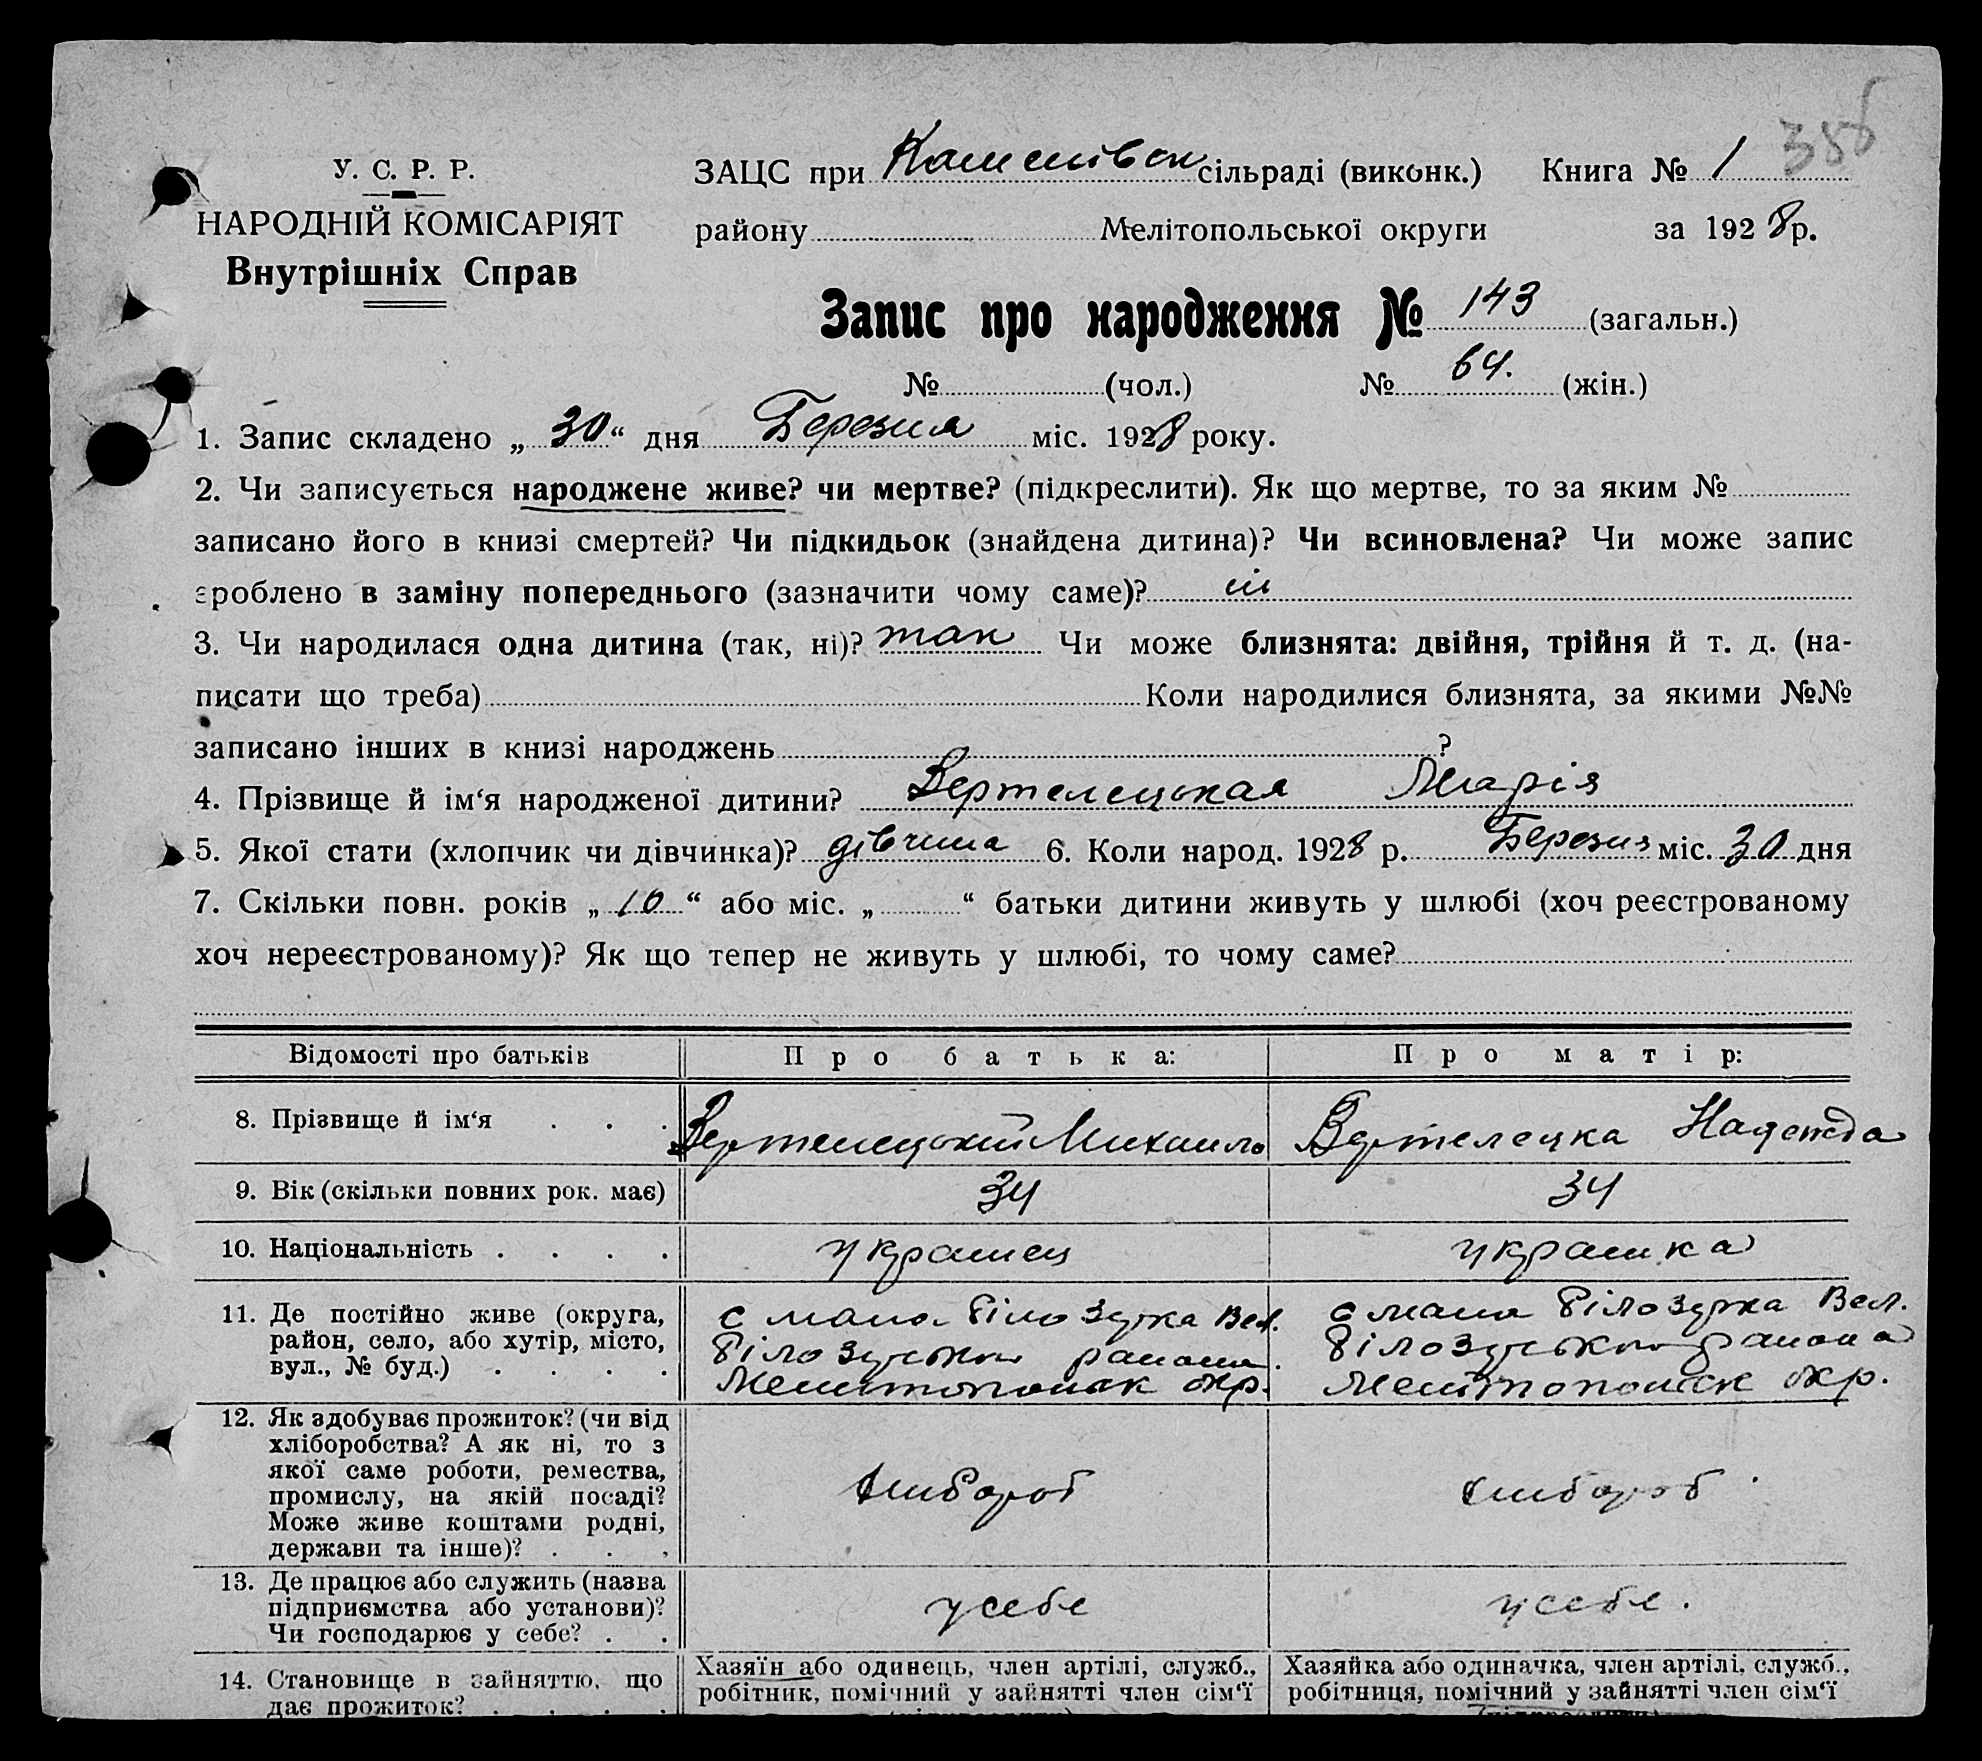 386
У. С. Р. Р.
НАРОДНІЙ КОМІСАРІЯТ
Внутрішніх Справ
ЗАЦС при сільраді (виконк.) Книга № 1
району Мелітопольської округи за 1928 р.
Запис про народження № 143 (загальн.)
№ (чол.) № 64. (жін.)
1. Запис складено „ 30 “ дня Березня міс. 1928 року.
2. Чи записується народжене живе? чи мертве? (підкреслити). Як що мертве, то за яким №
записано його в книзі смертей? Чи підкидьок (знайдена дитина)? Чи всиновлена? Чи може запис
зроблено в заміну попереднього (зазначити чому саме)? ні
3. Чи народилася одна дитина (так, ні)? так Чи може близнята: двійня, трійня й т. д. (на-
писати що треба) Коли народилися близнята, за якими №№
записано інших в книзі народжень ?
4. Прізвище й ім‘я народженої дитини? Вертелецькая Марія
5. Якої стати (хлопчик чи дівчинка)? дівчина 6. Коли народ. 1928 р. Березня міс. 30 дня
7. Скільки повн. років „ 10 “ або міс. „ “ батьки дитини живуть у шлюбі (хоч реєстрованому
хоч нереєстрованому)? Як що тепер не живуть у шлюбі, то чому саме?
Відомості про батьків Про батька: Про матір:
8. Прізвище й ім‘я . . . Вертелецький Михаило Вертелецка Надежда
9. Вік (скільки повних рок. має) 34 34
10. Національність . . . . украинец украинка
11. Де постійно живе (округа,
район, село, або хутір, місто,
вул., № буд.) . . . .
с мала Білозурка Вел.
Білозурського района.
Мелитопольск окр.
с мала Білозурка Вел.
Білозурского района
Мелитопольск окр.
12. Як здобуває прожиток? (чи від
хліборобства? А як ні, то з
якої саме роботи, ремества,
промислу, на якій посаді?
Може живе коштами родні,
держави та інше)? . . .
хлибороб хлибороб.
13. Де працює або служить (назва
підприємства або установи)?
Чи господарює у себе? . .
у себе у себе.
14. Становище в зайняттю, що
дає прожиток? . . . .
Хазяїн або одинець, член артілі, служб.,
робітник, помічний у зайнятті член сім‘ї
Хазяйка або одиначка, член артілі, служб.,
робітниця, помічний у зайнятті член сім‘ї